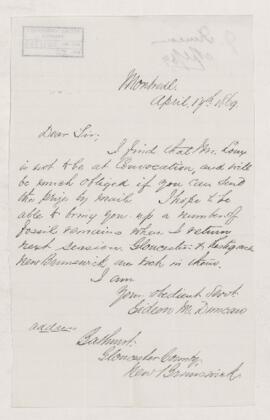 Montreal.
April, 17th 1869.
Dear Sir,
I find that Mr.
is not to be at Convocation, and will
be much obliged if you can send
the prize by mail. I hope to be
able to bring you up a number of
fossil remains when I return
next session. Gloucester &
New Brunswick, are rich in them.
I am
Your obedient Servt.
Gideon M. Duncan
address
Bathurst,
Gloucester County,
New Brunswick